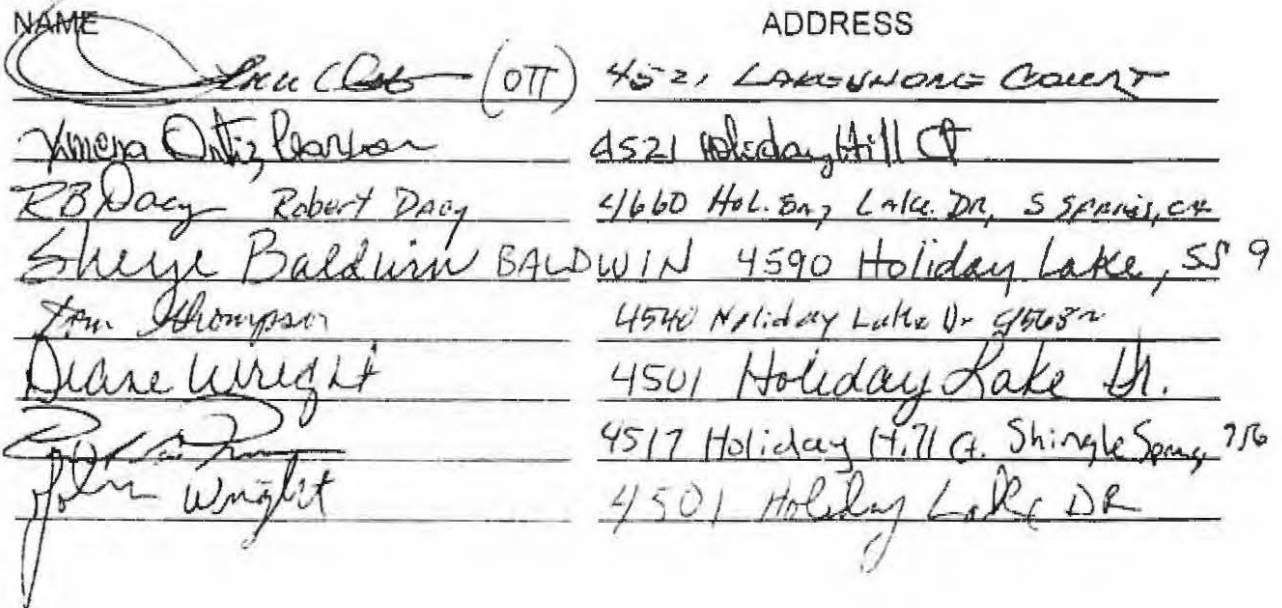 NAME ADDRESS
(OTT) 4521 LAKESHORE COURT
Ximena Ortiz Pearson 4521 Holiday Hill Ct
RB Dacy Robert Dacy 4660 Hol. Lake. DR, S
Sherye Baldwin BALDWIN 4590 Holiday Lake, SS 9
Tom Thompson 4540 Holiday Lake Dr 95682
Diane Wright 4501 Holiday Lake Dr.
4517 Holiday Hill Ct. Shingle Springs 956
John Wright 4501 Holiday Lake DR